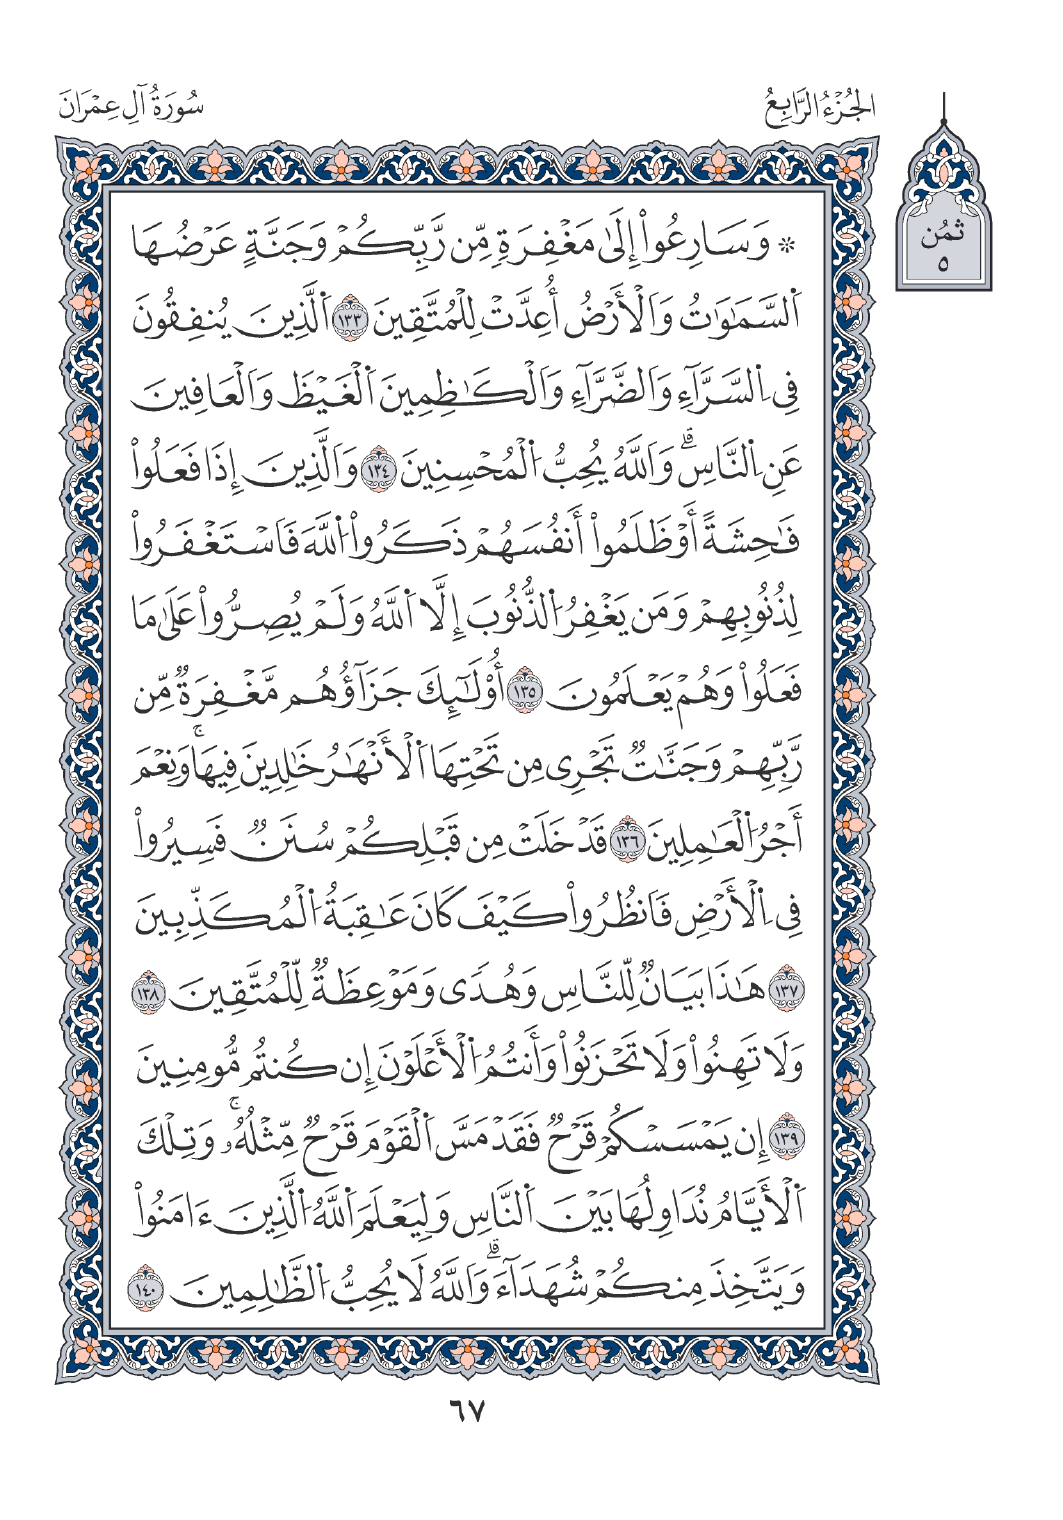 سُورَةُ آلِ عِمْرَانَ
الجُزْءُ الرَّابِعُ
ثُمُن
٥
* وَسَارِعُوا۟ إِلَىٰ مَغْفِرَةٍ مِّن رَّبِّكُمْ وَجَنَّةٍ عَرْضُهَا
اَ۬لسَّمَٰوَٰتُ وَالْأَرْضُ أُعِدَّتْ لِلْمُتَّقِينَ ١٣٣ اَ۬لَّذِينَ يُنفِقُونَ
فِي اِ۬لسَّرَّآءِ وَالضَّرَّآءِ وَالْكَٰظِمِينَ اَ۬لْغَيْظَ وَالْعَافِينَ
عَنِ اِ۬لنَّاسِۗ وَاللَّهُ يُحِبُّ اُ۬لْمُحْسِنِينَ ١٣٤ وَالَّذِينَ إِذَا فَعَلُوا۟
فَٰحِشَةً أَوْ ظَلَمُوا۟ أَنفُسَهُمْ ذَكَرُوا۟ اُ۬للَّهَ فَاسْتَغْفَرُوا۟
لِذُنُوبِهِمْ وَمَن يَغْفِرُ اُ۬لذُّنُوبَ إِلَّا اَ۬للَّهُ وَلَمْ يُصِرُّوا۟ عَلَىٰ مَا
فَعَلُوا۟ وَهُمْ يَعْلَمُونَ ١٣٥ أُو۟لَٰٓئِكَ جَزَآؤُهُم مَّغْفِرَةٌ مِّن
رَّبِّهِمْ وَجَنَّٰتٌ تَجْرِي مِن تَحْتِهَا اَ۬لْأَنْهَٰرُ خَٰلِدِينَ فِيهَاۚ وَنِعْمَ
أَجْرُ اُ۬لْعَٰمِلِينَ ١٣٦ قَدْ خَلَتْ مِن قَبْلِكُمْ سُنَنٌ فَسِيرُوا۟
فِي اِ۬لْأَرْضِ فَانظُرُوا۟ كَيْفَ كَانَ عَٰقِبَةُ اُ۬لْمُكَذِّبِينَ
١٣٧ هَٰذَا بَيَانٌ لِّلنَّاسِ وَهُدًى وَمَوْعِظَةٌ لِّلْمُتَّقِينَ ١٣٨
وَلَا تَهِنُوا۟ وَلَا تَحْزَنُوا۟ وَأَنتُمُ اُ۬لْأَعْلَوْنَ إِن كُنتُم مُّومِنِينَ
١٣٩ إِن يَمْسَسْكُمْ قَرْحٌ فَقَدْ مَسَّ اَ۬لْقَوْمَ قَرْحٌ مِّثْلُهُۥۚ وَتِلْكَ
اَ۬لْأَيَّامُ نُدَاوِلُهَا بَيْنَ اَ۬لنَّاسِ وَلِيَعْلَمَ اَ۬للَّهُ اُ۬لَّذِينَ ءَامَنُوا۟
وَيَتَّخِذَ مِنكُمْ شُهَدَآءَۗ وَاللَّهُ لَا يُحِبُّ اُ۬لظَّٰلِمِينَ ١٤٠
٦٧